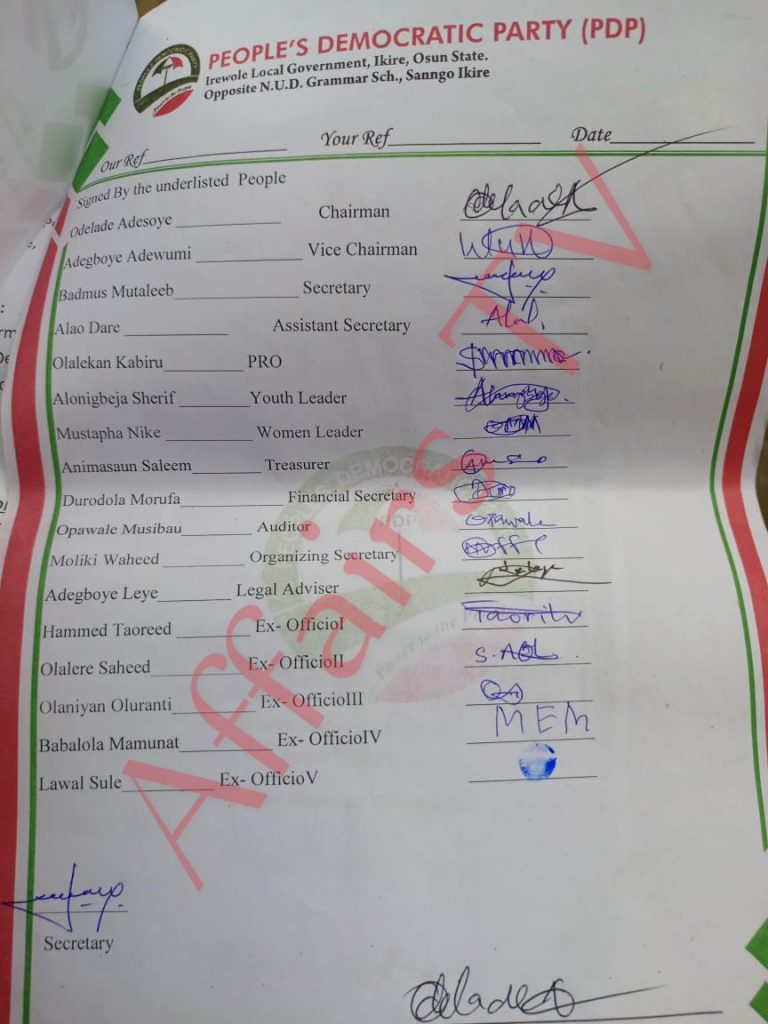 PEOPLE'S DEMOCRATIC PARTY (PDP)
Irewole Local Government, Ikire, Osun State.
Opposite N.U.D. Grammar Sch., Sanngo Ikire
Our Ref____________ Your Ref____________ Date____________
Signed By the underlisted People
Odelade Adesoye ____________ Chairman
Adegboye Adewumi ____________ Vice Chairman
Badmus Mutaleeb____________ Secretary
Alao Dare ____________ Assistant Secretary
Olalekan Kabiru____________ PRO
Alonigbeja Sherif ____________Youth Leader
Mustapha Nike ____________ Women Leader
Animasaun Saleem____________ Treasurer
Durodola Morufa____________ Financial Secretary
Opawale Musibau____________ Auditor Opawale
Moliki Waheed ____________ Organizing Secretary
Adegboye Leye____________ Legal Adviser
Hammed Taoreed ____________ Ex- OfficioI
Olalere Saheed____________ Ex- OfficioII
Olaniyan Oluranti____________ Ex- OfficioIII
Babalola Mamunat____________ Ex- OfficioIV MEM
Lawal Sule____________ Ex- OfficioV
Secretary
Affairs TV